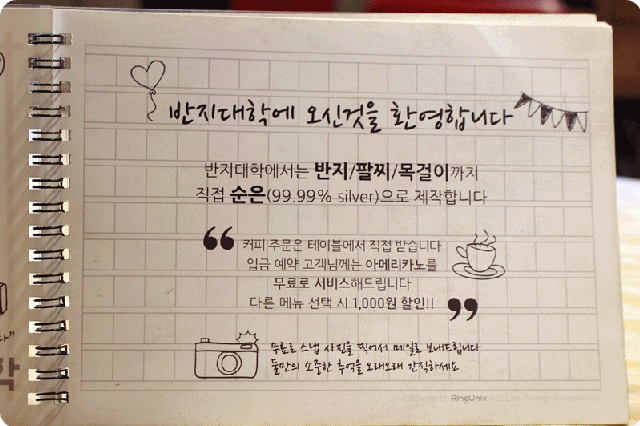 반지대학에 오신것을 환영합니다
반지대학에서는 반지/팔찌/목걸이까지
직접 순은(99.99% silver)으로 제작합니다
“ 커피 주문은 테이블에서 직접 받습니다
입금 예약 고객님께는 아메리카노를
무료로 서비스해드립니다
다른 메뉴 선택 시 1,000원 할인!! ”
무료로 스냅 사진을 찍어서 메일로 보내드립니다
둘만의 소중한 추억을 오래오래 간직하세요
Copyright© RingUniv Co. Ltd. All Rights Reserved.
학